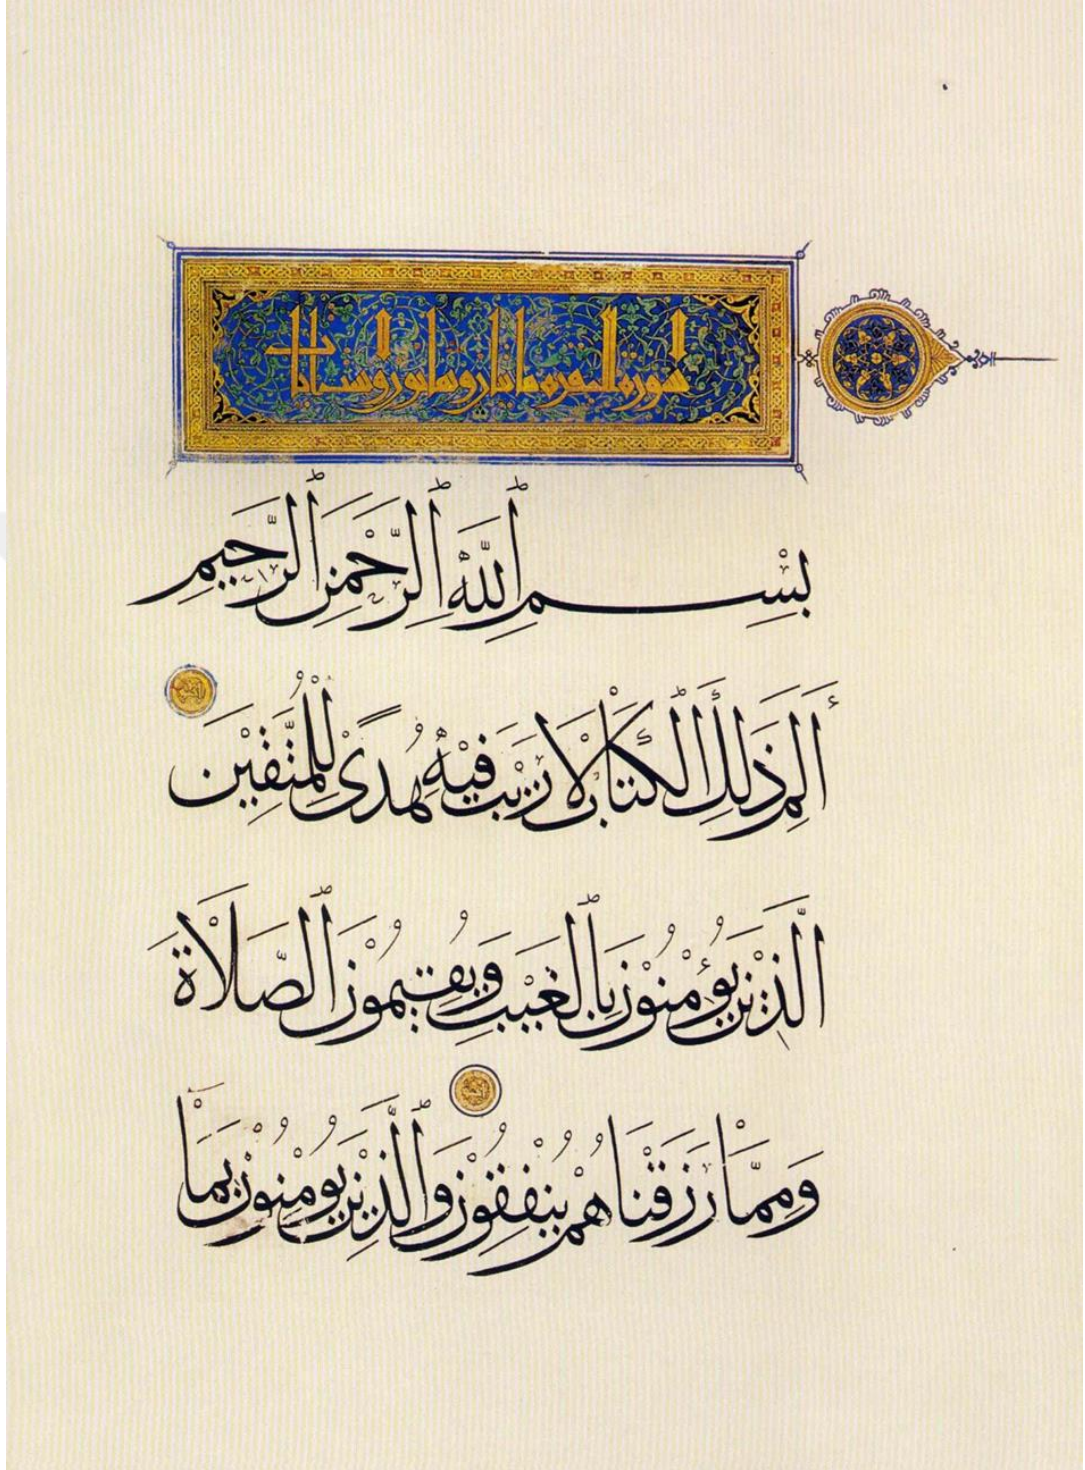 سورة البقرة مايتان وثمانون وست ايات
بِسْمِ ٱللَّهِ ٱلرَّحْمٰنِ ٱلرَّحِيمِ
الٓمٓ ذَٰلِكَ ٱلْكِتَابُ لَا رَيْبَ فِيهِ هُدًى لِلْمُتَّقِينَ
الَّذِينَ يُؤْمِنُونَ بِٱلْغَيْبِ وَيُقِيمُونَ ٱلصَّلَاةَ
وَمِمَّا رَزَقْنَاهُمْ يُنْفِقُونَ وَٱلَّذِينَ يُومِنُونَ بِمَا